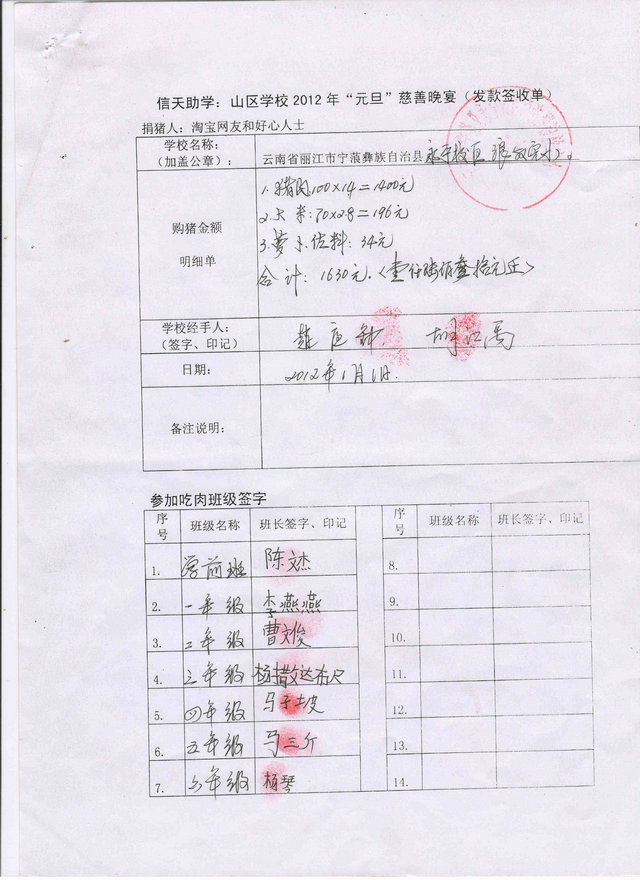 信天助学：山区学校2012年“元旦”慈善晚宴（发款签收单）
捐猪人：淘宝网友和好心人士
学校名称：
（加盖公章）：
云南省丽江市宁蒗彝族自治县永宁校区
购猪金额
明细单
1.猪肉100×14=1400元
2.大米:70×2.8=196元
3.萝卜.佐料:34元
合计:1630元.<壹仟陆佰叁拾元正>
学校经手人：
（签字、印记）
日期：
2012年1月1日.
备注说明：
参加吃肉班级签字
序号 班级名称 班长签字、印记 序号 班级名称 班长签字、印记
1. 学前班 陈文杰 8.
2. 一年级 李燕燕 9.
3. 二年级 曹文俊 10.
4. 三年级 杨撒达布尺 11.
5. 四年级 马子坡 12.
6. 五年级 马三斤 13.
7. 六年级 杨琴 14.